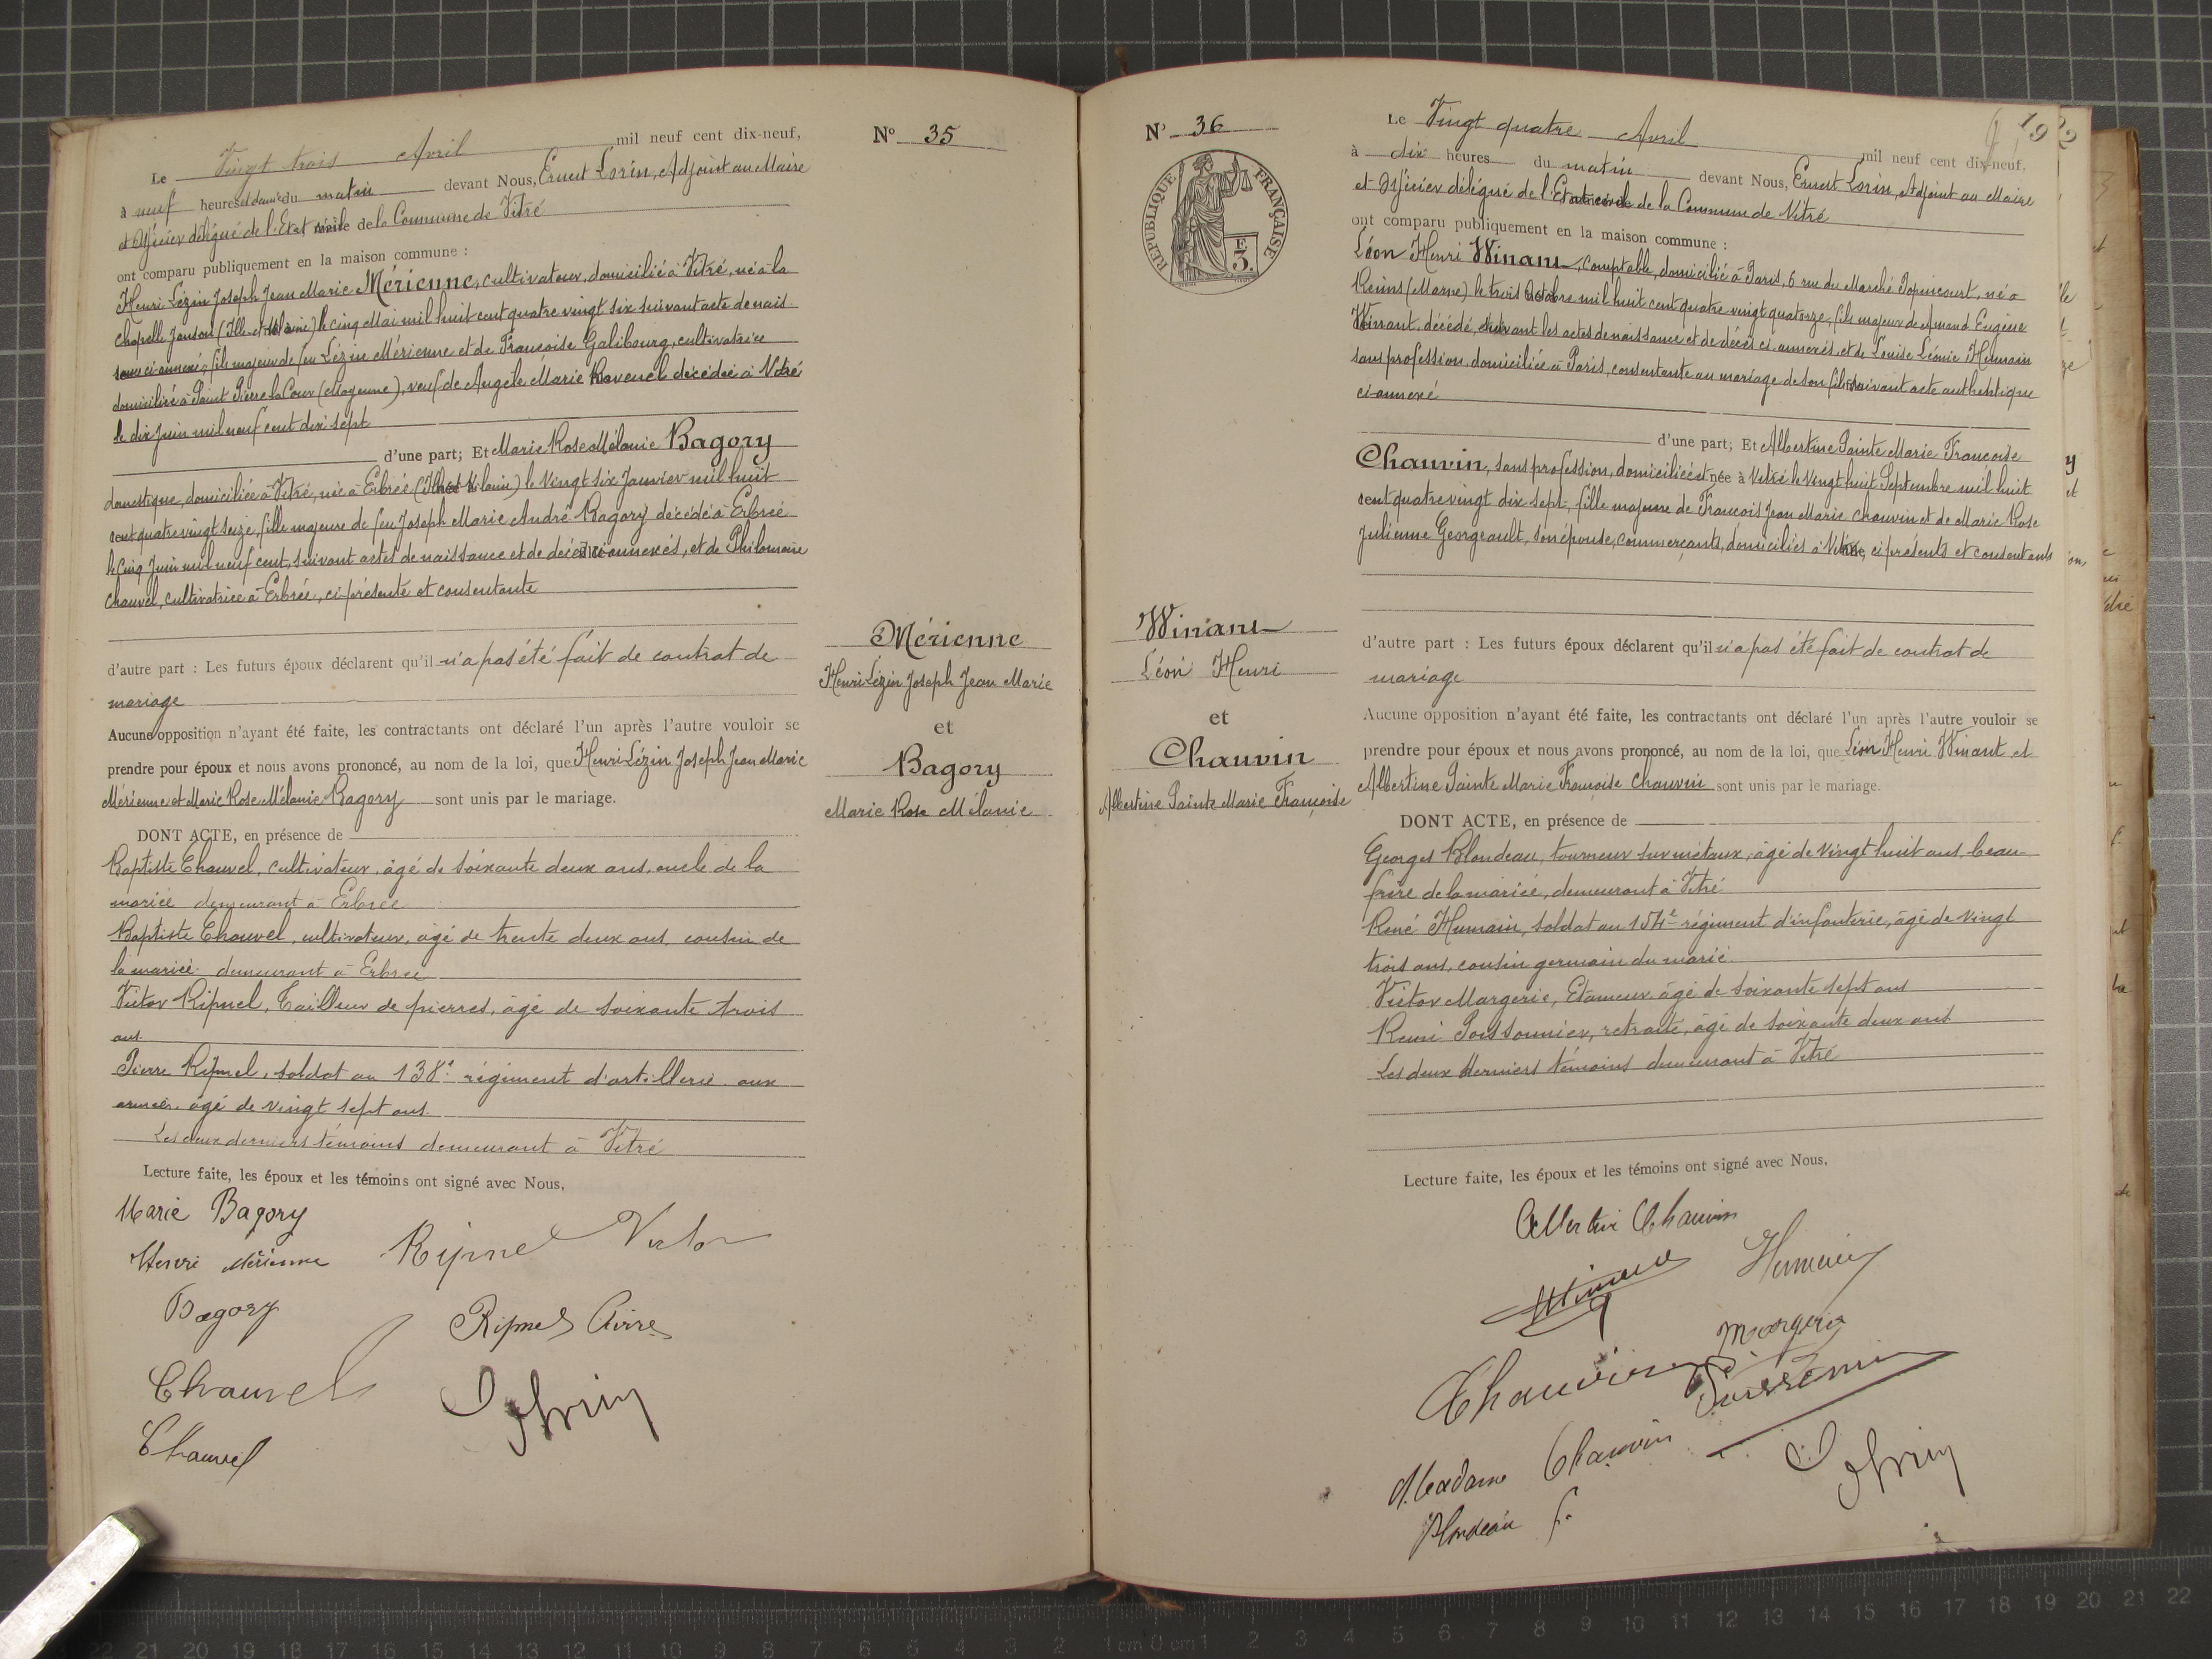 Le Vingt trois Avril mil neuf cent dix-neuf,
à neuf heures et demie du matin devant Nous, Ernest Lorin, Adjoint au Maire
et Officier délégué de l'Etat civil de la Commune de Vitré
ont comparu publiquement en la maison commune :
Henri Lézin Joseph Jean Marie Mérienne, cultivateur, domicilié à Vitré, né à la
Chapelle Janson (Ille-et-Vilaine) le cinq Mai mil huit cent quatre vingt six suivant acte de nais-
sance ci-annexé, fils majeur de feu Lézin Mérienne et de Françoise Galibourg, cultivatrice
domiciliée à Saint Pierre la Cour (Mayenne), veuf de Angèle Marie Ravenel décédée à Vitré
le dix Juin mil neuf cent dix sept
d'une part; Et Marie Rose Mélanie Bagory
domestique, domiciliée à Vitré, née à Erbrée (Ille et Vilaine) le Vingt six Janvier mil huit
cent quatre vingt seize, fille majeure de feu Joseph Marie André Bagory décédé à Erbrée
le cinq Juin mil neuf cent, suivant actes de naissance et de décès ci annexés, et de Philomène
Chauvel, cultivatrice à Erbrée, ci présente et consentante
d'autre part : Les futurs époux déclarent qu'il n'a pas été fait de contrat de
mariage
Aucune opposition n'ayant été faite, les contractants ont déclaré l'un après l'autre vouloir se
prendre pour époux et nous avons prononcé, au nom de la loi, que Henri Lézin Joseph Jean Marie
Mérienne et Marie Rose Mélanie Bagory sont unis par le mariage.
DONT ACTE, en présence de
Baptiste Chauvel, cultivateur, âgé de soixante deux ans, oncle de la
mariée demeurant à Erbrée
Baptiste Chauvel, cultivateur, âgé de trente deux ans, cousin de
la mariée demeurant à Erbrée
Victor Ripnel, Tailleur de pierres, âgé de soixante trois
ans.
Pierre Ripnel, soldat au 138e régiment d'artillerie aux
armées, âgé de vingt sept ans.
Les deux derniers témoins demeurant à Vitré
Lecture faite, les époux et les témoins ont signé avec Nous,
Marie Bagory
Henri Mérienne
Ripnel Victor
Bagory
Ripnel Pierre
Chauvel
Chauvel
Lorin
N° 35
Mérienne
Henri Lézin Joseph Jean Marie
et
Bagory
Marie Rose Mélanie
N° 36
RÉPUBLIQUE FRANÇAISE
F
3.
Winant
Léon Henri
et
Chauvin
Albertine Sainte Marie Françoise
19
Le Vingt quatre Avril mil neuf cent dix-neuf,
à dix heures du matin devant Nous, Ernest Lorin, Adjoint au Maire
et Officier délégué de l'Etat civil de la Commune de Vitré
ont comparu publiquement en la maison commune :
Léon Henri Winant, comptable, domicilié à Paris, 6 rue du Marché Popincourt, né à
Reims (Marne) le trois Octobre mil huit cent quatre vingt quatorze, fils majeur de Armand Eugène
Winant, décédé, suivant les actes de naissance et de décès ci annexés, et de Louise Léonie Humain
sans profession, domiciliée à Paris, consentante au mariage de son fils suivant acte authentique
ci-annexé
d'une part; Et Albertine Sainte Marie Françoise
Chauvin, sans profession, domiciliée et née à Vitré le Vingt huit Septembre mil huit
cent quatre vingt dix sept, fille majeure de François Jean Marie Chauvin et de Marie Rose
Julienne Georgeault, son épouse, commerçants, domiciliés à Vitré, ci présents et consentants
d'autre part : Les futurs époux déclarent qu'il n'a pas été fait de contrat de
mariage
Aucune opposition n'ayant été faite, les contractants ont déclaré l'un après l'autre vouloir se
prendre pour époux et nous avons prononcé, au nom de la loi, que Léon Henri Winant et
Albertine Sainte Marie Françoise Chauvin sont unis par le mariage.
DONT ACTE, en présence de
Georges Blondeau, tourneur sur métaux, âgé de vingt huit ans, beau-
frère de la mariée, demeurant à Vitré
René Humain, soldat au 154e régiment d'infanterie, âgé de vingt
trois ans, cousin germain du marié
Victor Margerie, Etameur âgé de soixante sept ans
Remi Poissonnier, retraité, âgé de soixante deux ans
Les deux derniers témoins demeurant à Vitré
Lecture faite, les époux et les témoins ont signé avec Nous,
Albertine Chauvin
Winant
Humain
Margerie
Chauvin
Madame Chauvin
Lorin
Blondeau G.
22 21 20 19 18 17 16 15 14 13 12 11 10 9 8 7 6 5 4 3 2 1 cm 0 cm 1 2 3 4 5 6 7 8 9 10 11 12 13 14 15 16 17 18 19 20 21 22